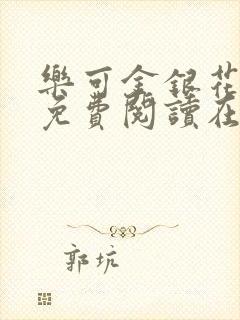 樂可金銀花
免費閱讀在
郭坑